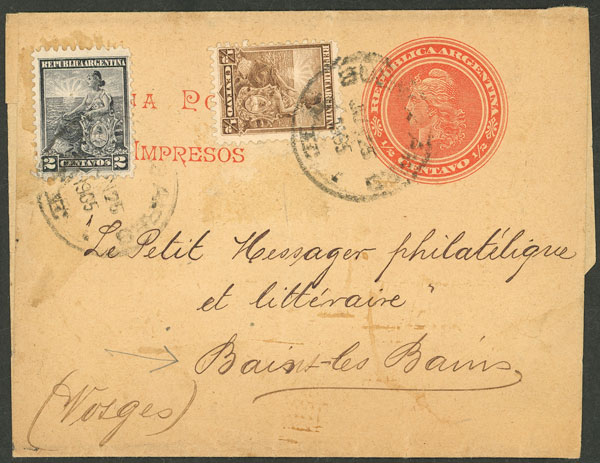 REPUBLICA ARGENTINA
2 CENTAVOS 2
REPUBLICA ARGENTINA
1/2 CENTAVO 1/2
REPUBLICA ARGENTINA
1/2 CENTAVO 1/2
NA PO
IMPRESOS
1905
1905
Le Petit Messager philatélique
et littéraire
Bains-les Bains
(Vosges)